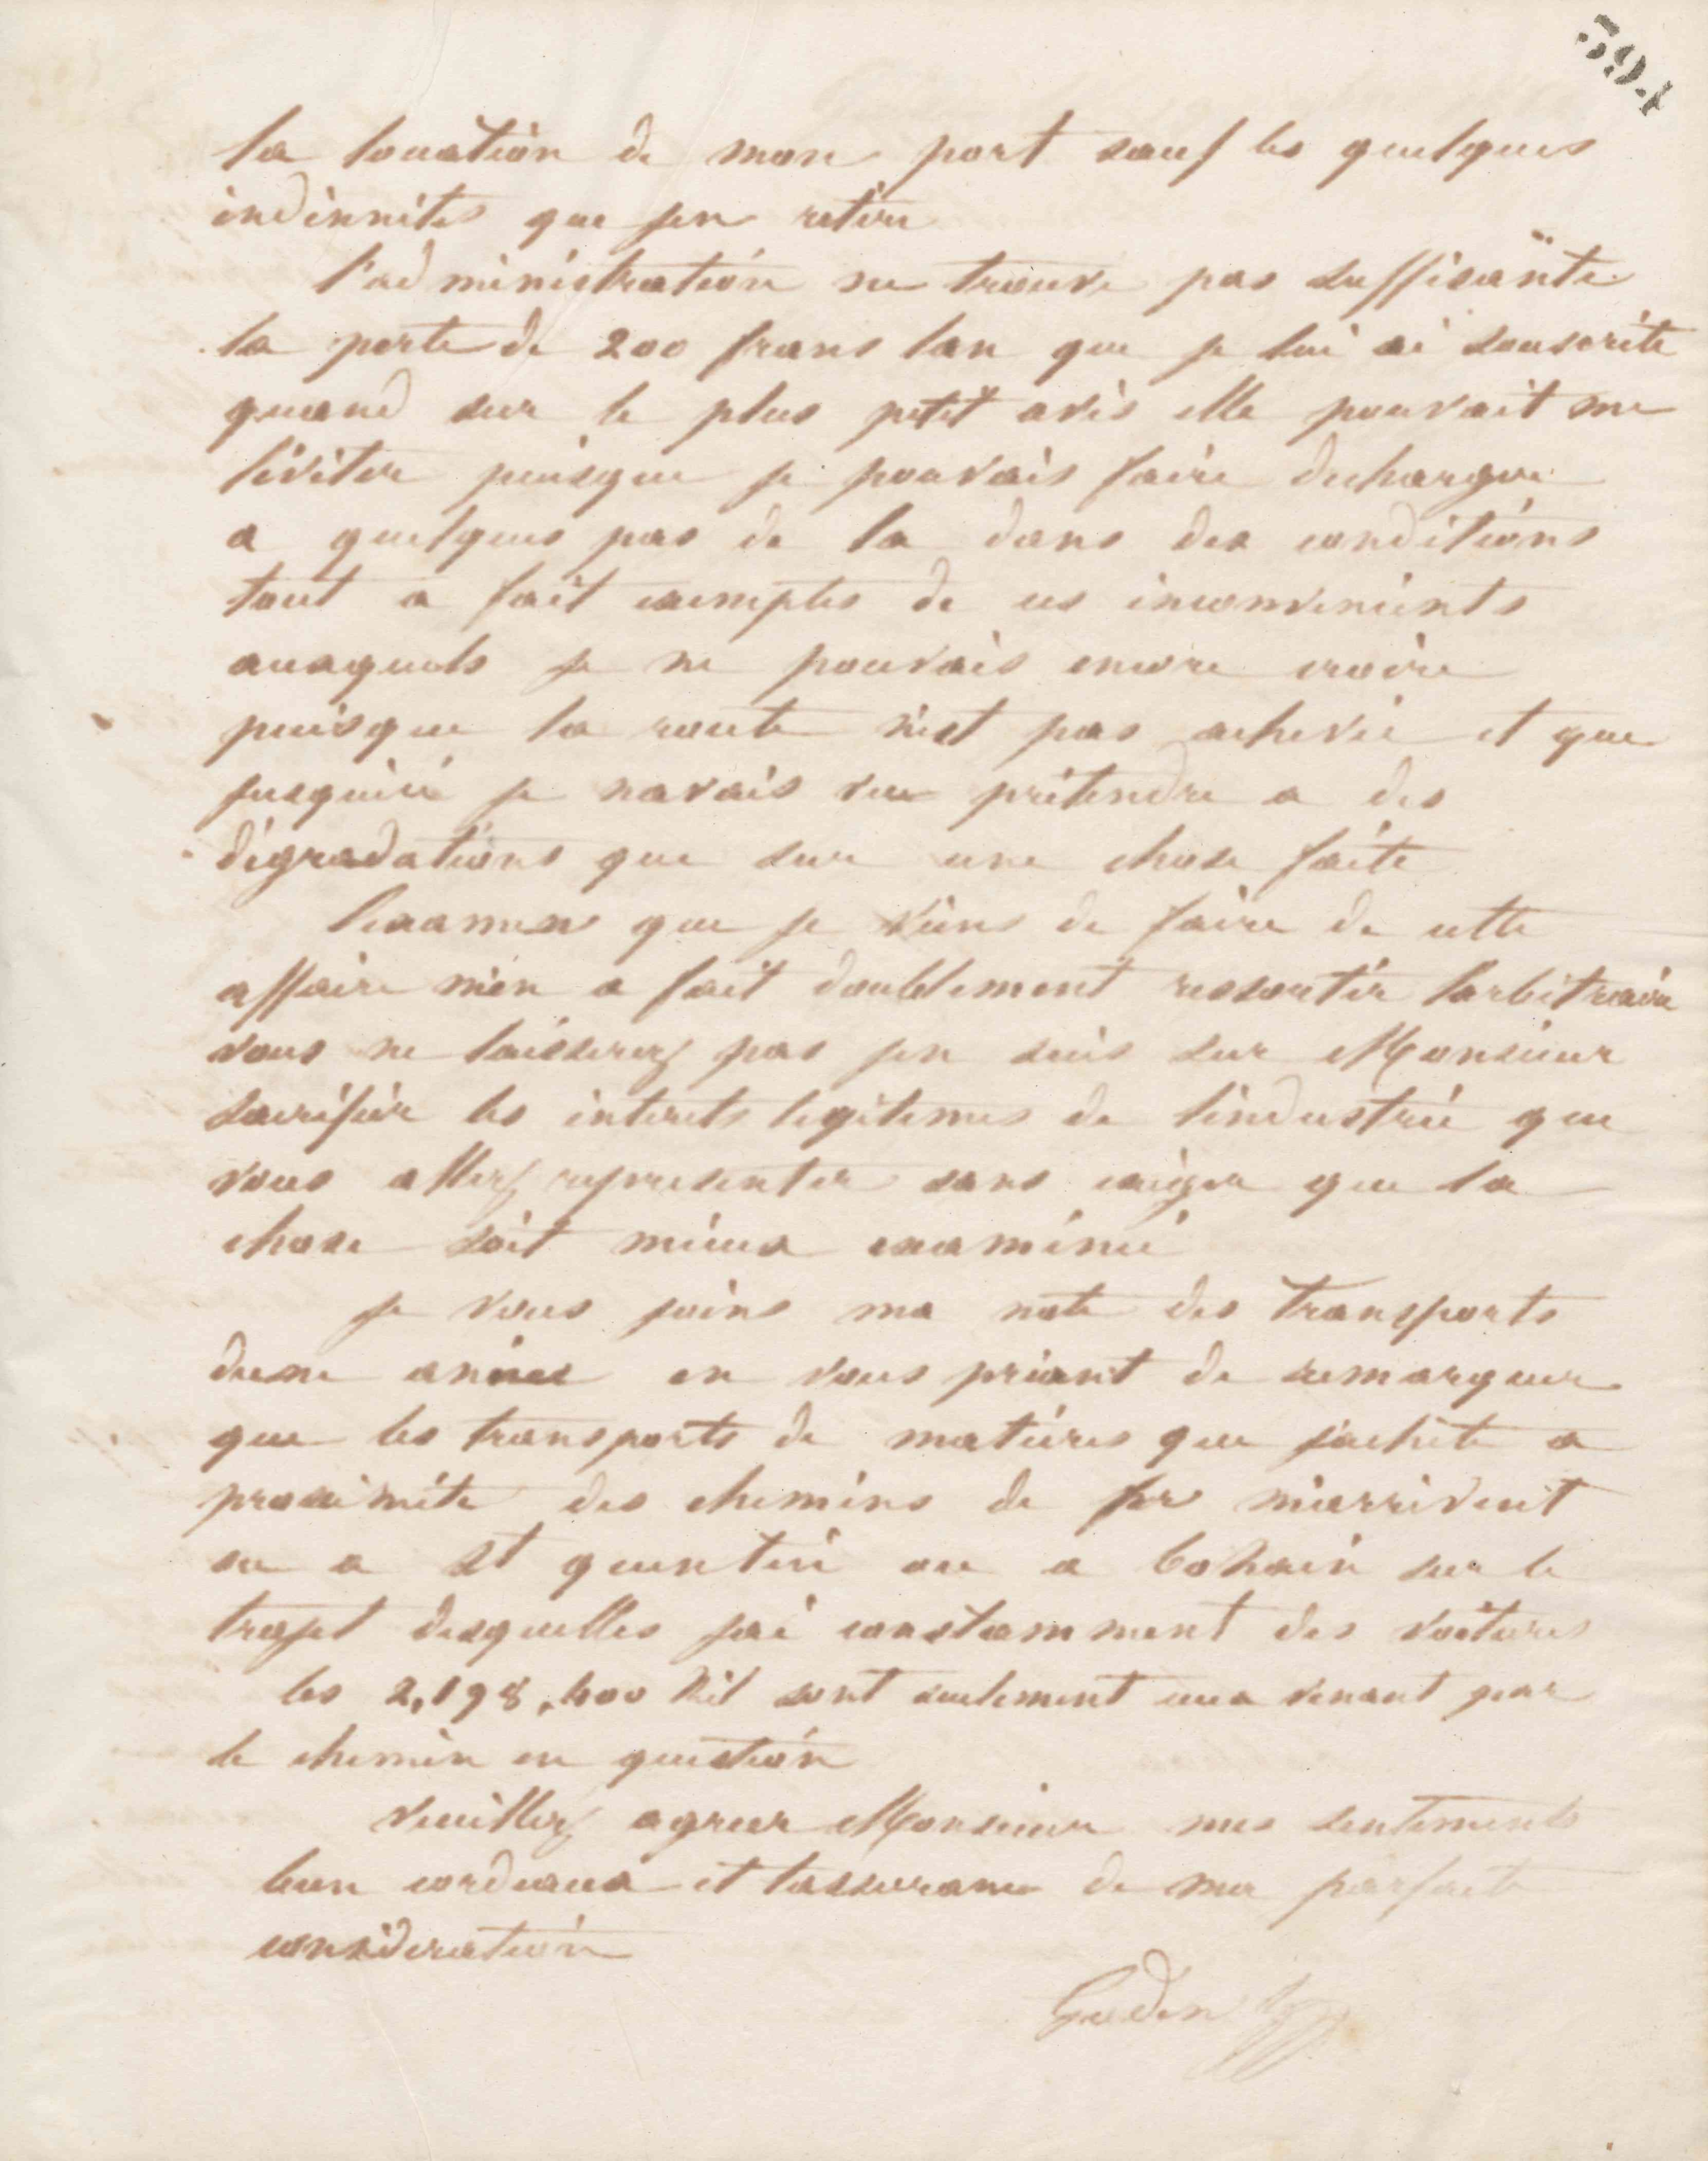 594
la location de mon port sauf les quelques
indemnites que jen retire
l'administration ne trouve pas suffisante
la perte de 200 francs lan que je lui ai souscrite
quand sur le plus petit avis elle pouvait me
léviter puisque je pouvais faire decharger
a quelques pas de la dans des conditions
tout a fait exemptes de ces inconvenients
auxquels je ne pouvais encore croire
puisque la route nest pas achevée et que
jusquici je navais vu prétendre a des
dégradations que sur une chose faite
lexamen que je viens de faire de cette
affaire men a fait doublement ressortir larbitraire
vous ne laisserez pas jen suis sur Monsieur
sacrifier les interets legitimes de lindustrie que
vous allez representer sans exiger que la
chose soit mieux examinée
je vous joins ma note des transports
dune année en vous priant de remarquer
que les transports de matières que jachete a
proximite des chemins de fer marrivent
ou a St quentin ou a Bohain sur le
trajet desquelles jai constamment des voitures
les 2,198,400 kil sont seulement ceux venant par
le chemin en question
Veuillez agreer Monsieur mes sentiments
bien cordiaux et lassurance de ma parfaite
considération
Godin